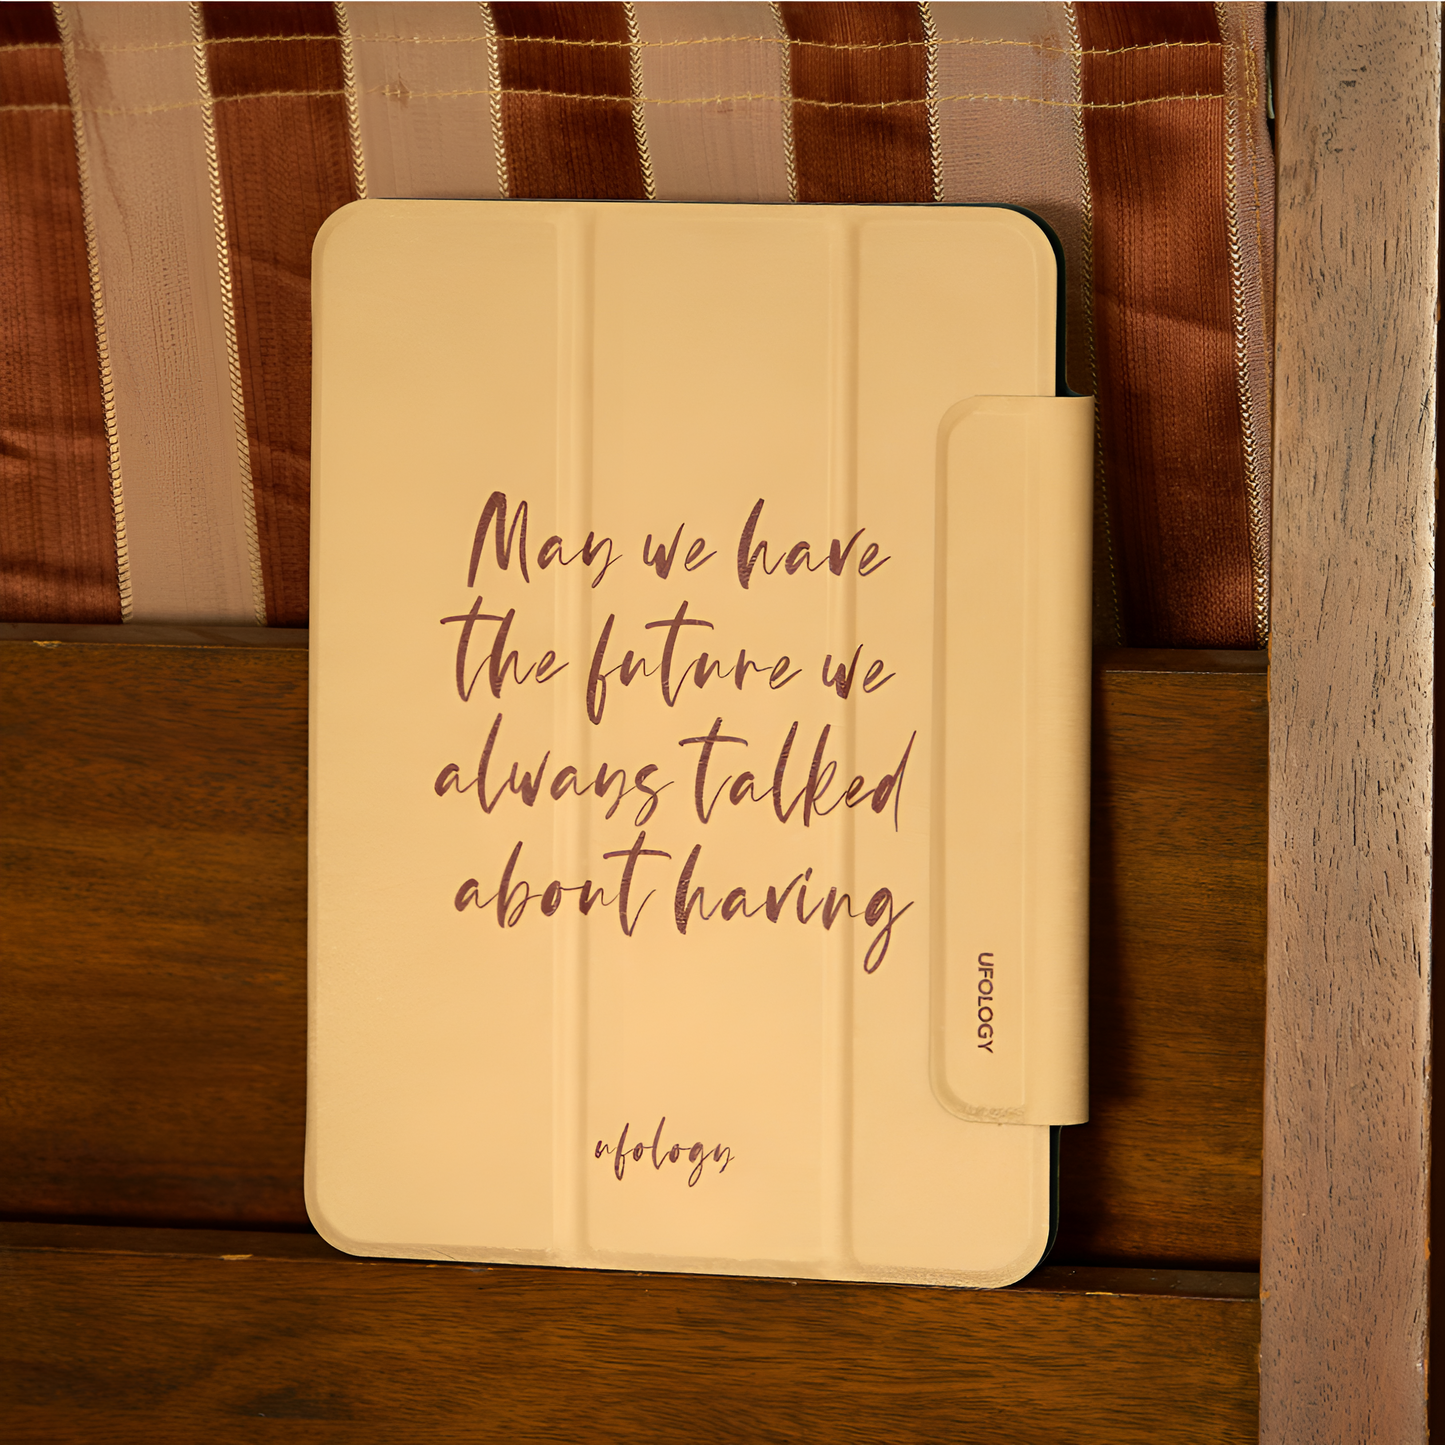 May we have
the future we
always talked
about having
UFOLOGY
ufology